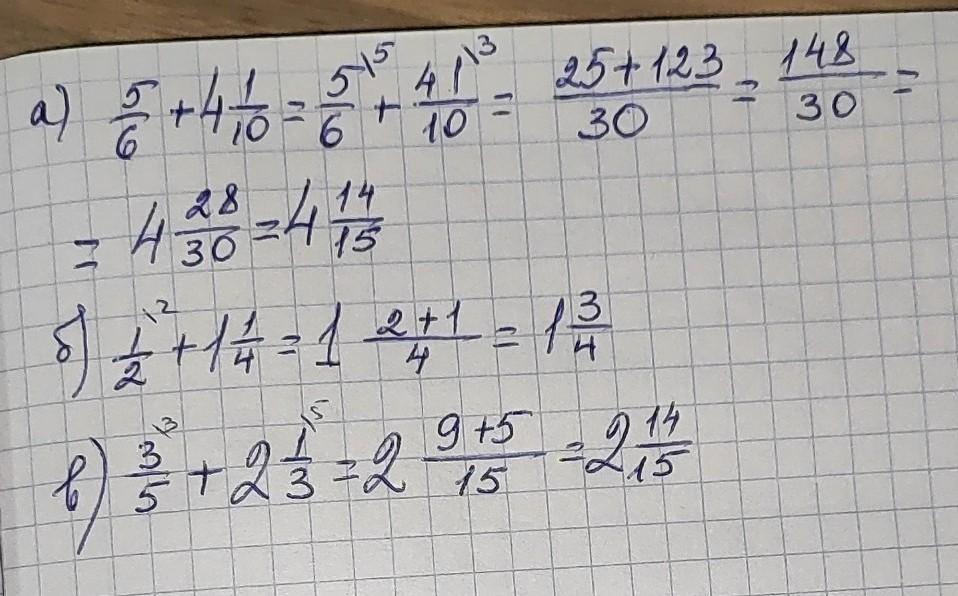 а) 5/6 + 4 1/10 = 5\5/6 + 41\3/10 = 25+123/30 = 148/30 =
= 4 28/30 = 4 14/15
б) 1\2/2 + 1 1/4 = 1 2+1/4 = 1 3/4
в) 3\3/5 + 2 1\5/3 = 2 9+5/15 = 2 14/15